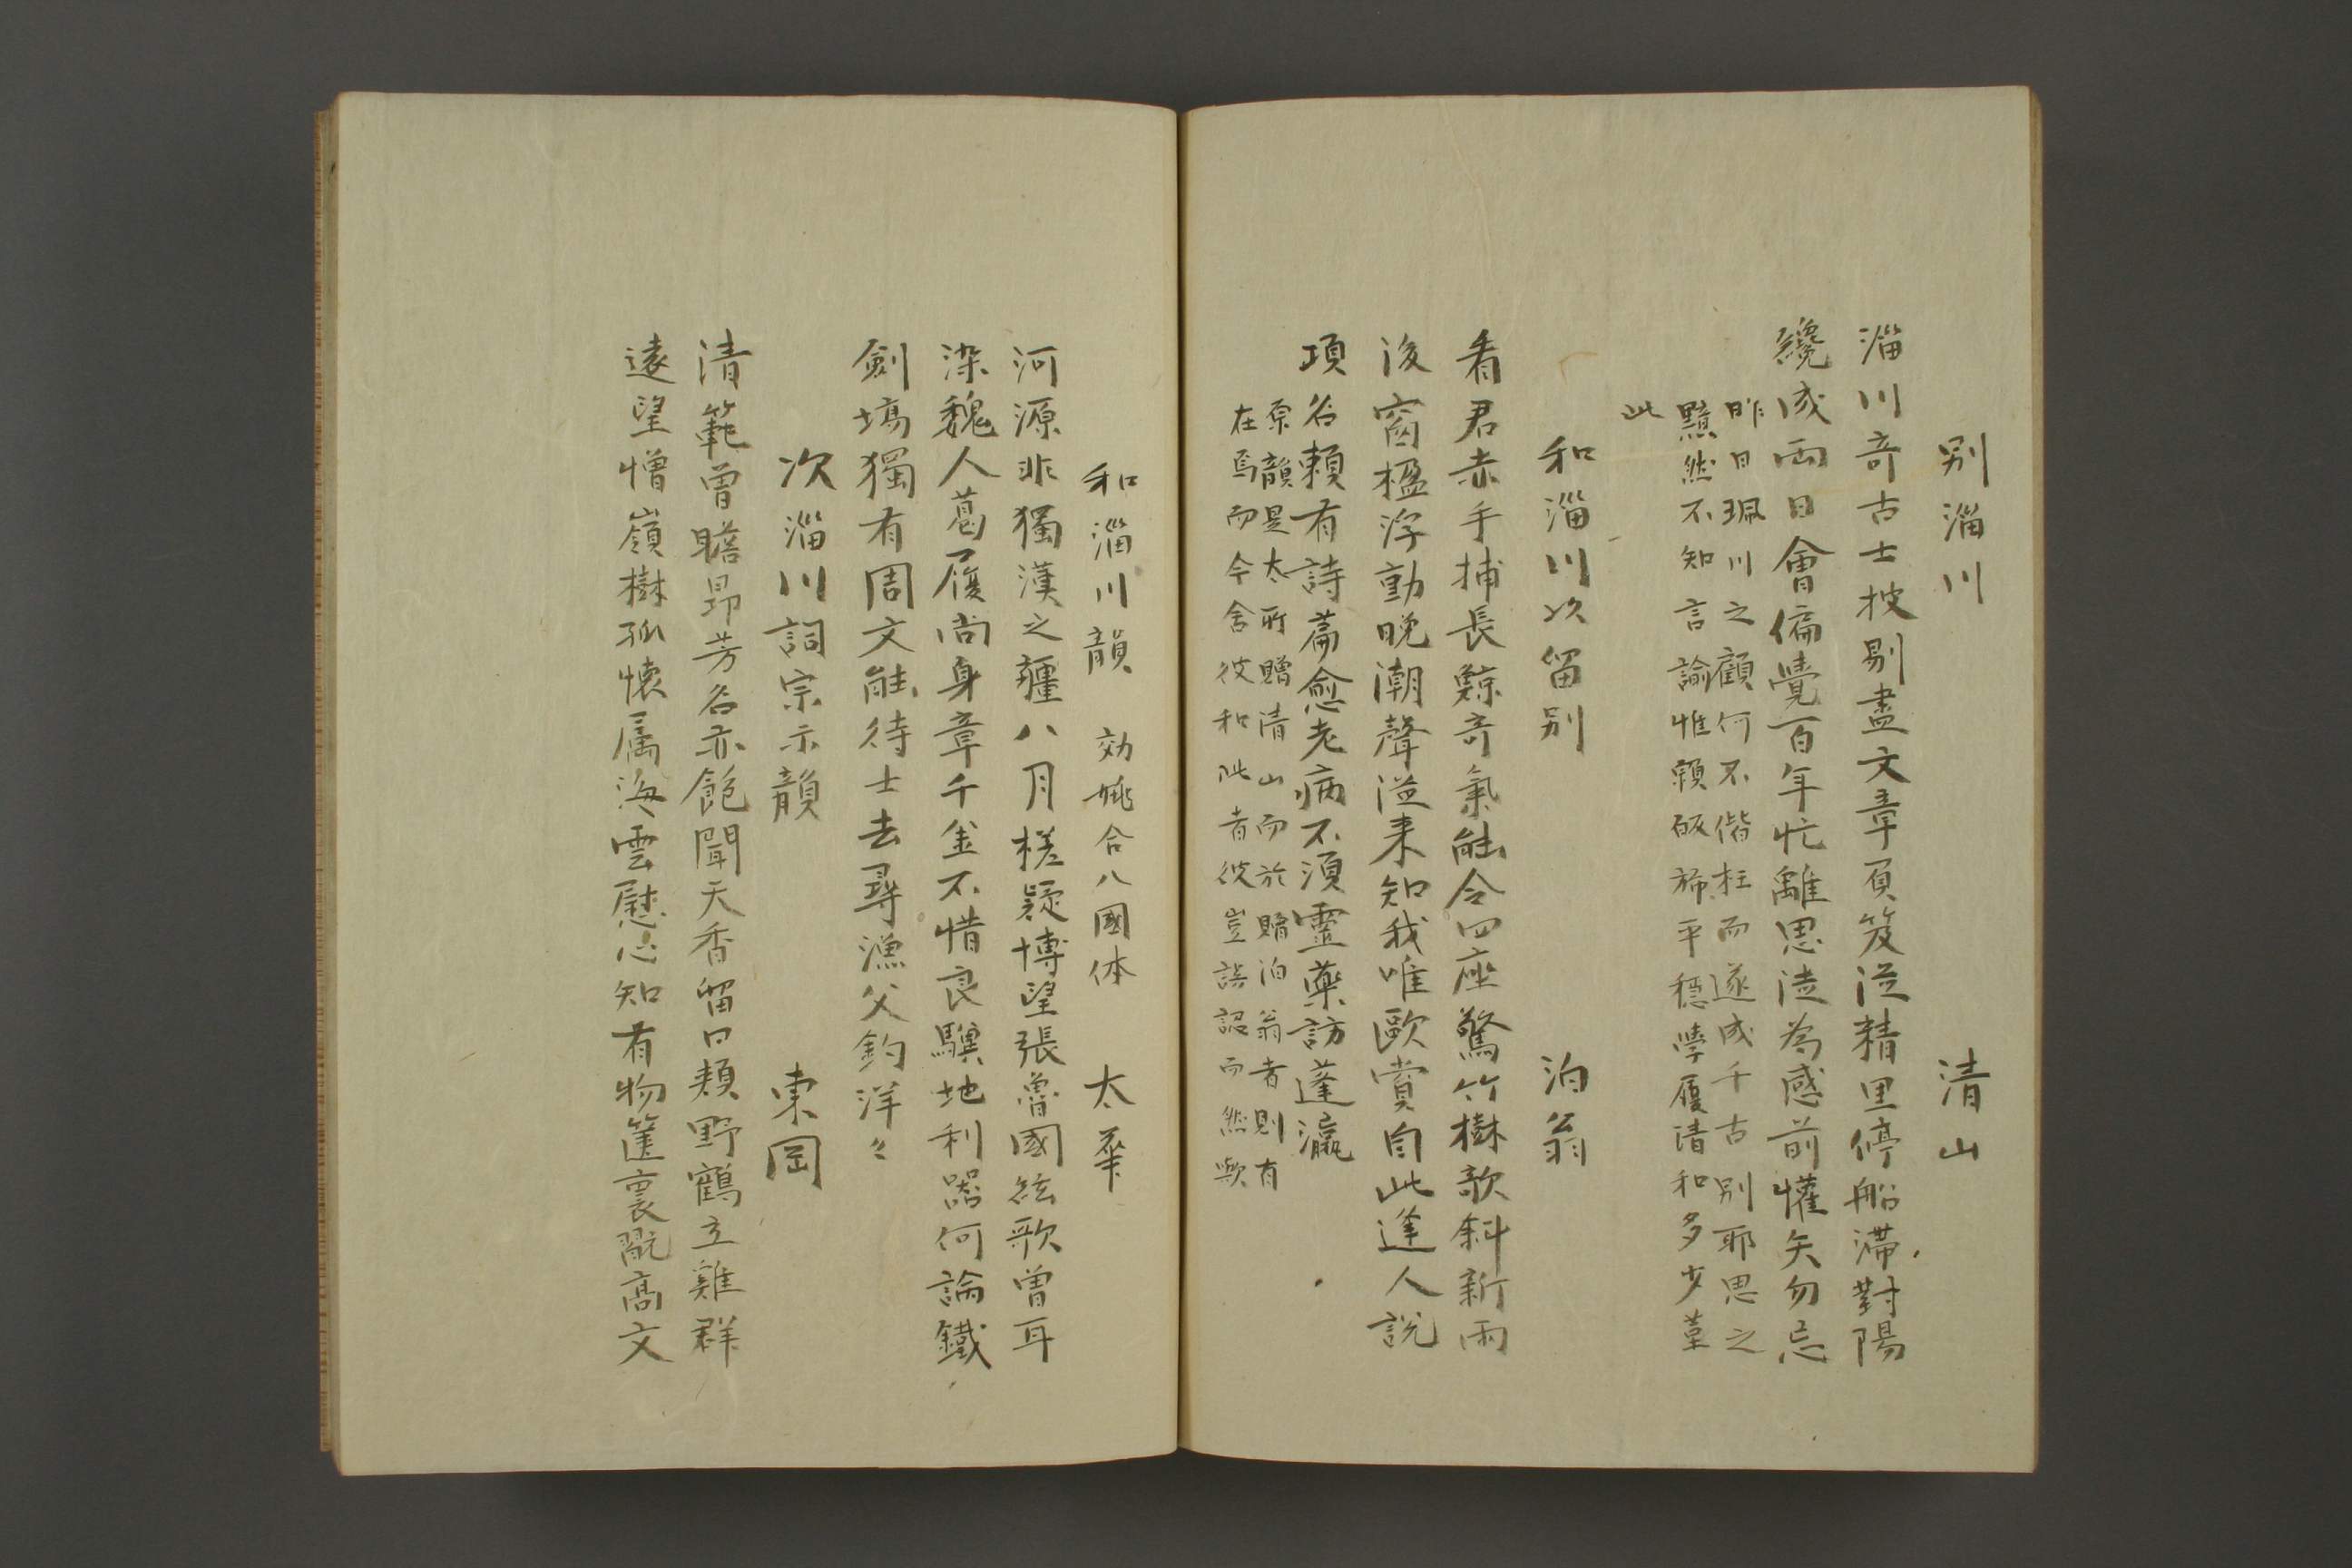 別淄川　清山
淄川奇古士披剔盡文章負笈從精里停船滯對陽
纔成兩日會偏覺百年忙離思徒為感前懽矢勿忘
昨日珮川之顧何不偕枉而遂成千古別耶思之
黯然不知言論惟賴砥旆平穩學履清和多少草
此
和淄川次留別　泊翁
看君赤手捕長鯨奇氣能令四座驚竹樹歌斜新雨
後窗楹浮動晚潮聲從来知我唯歐賞自此逢人說
項名頼有詩篇愈老病不須靈藥訪蓬瀛
原韻是太所贈清山而於贐泊翁者則有
在焉而今舍彼和此者彼豈誤認而然歟
和淄川韻　効姚合八國体　太華
河源非獨漢之疆八月槎疑博望張魯國絃歌曽耳
染魏人葛屨尚身章千金不惜良驥地利器何論鐵
劍場獨有周文能待士去尋漁父釣洋々
次淄川詞宗示韻　東岡
清範曽瞻昴芳名亦飽聞天香留口頰野鶴立雞群
遠望憎嶺樹孤懐属海雲慰心知有物篋裏翫高文